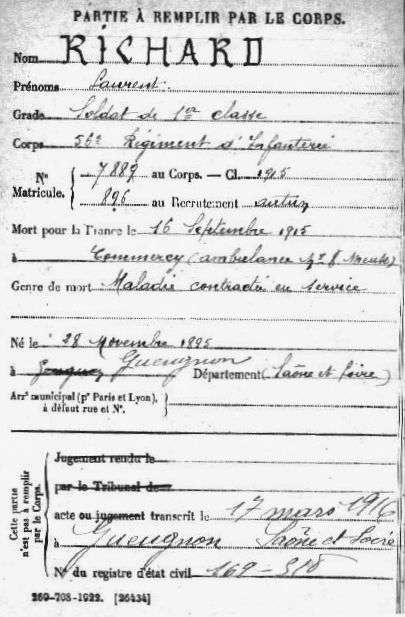 PARTIE À REMPLIR PAR LE CORPS.
Nom RICHARD
Prénoms Laurent
Grade Soldat de 1re classe
Corps 56e Régiment d'Infanterie
Nos Matricule. { 7889 au Corps. — Cl. 1915
896 au Recrutement Autun
Mort pour la France le 16 Septembre 1915
à Commercy (ambulance Meuse)
Genre de mort Maladie contractée en service
Né le 28 Novembre 1895
à Gueugnon Département (Saône et Loire)
Arrt municipal (pr Paris et Lyon), à défaut rue et N°. {
Cette partie n'est pas à remplir par le Corps. {
Jugement rendu le
par le Tribunal de
acte ou jugement transcrit le 17 mars 1916
à Gueugnon Saône et Loire
N° du registre d'état civil 169-318
269-708-1922. [26434]